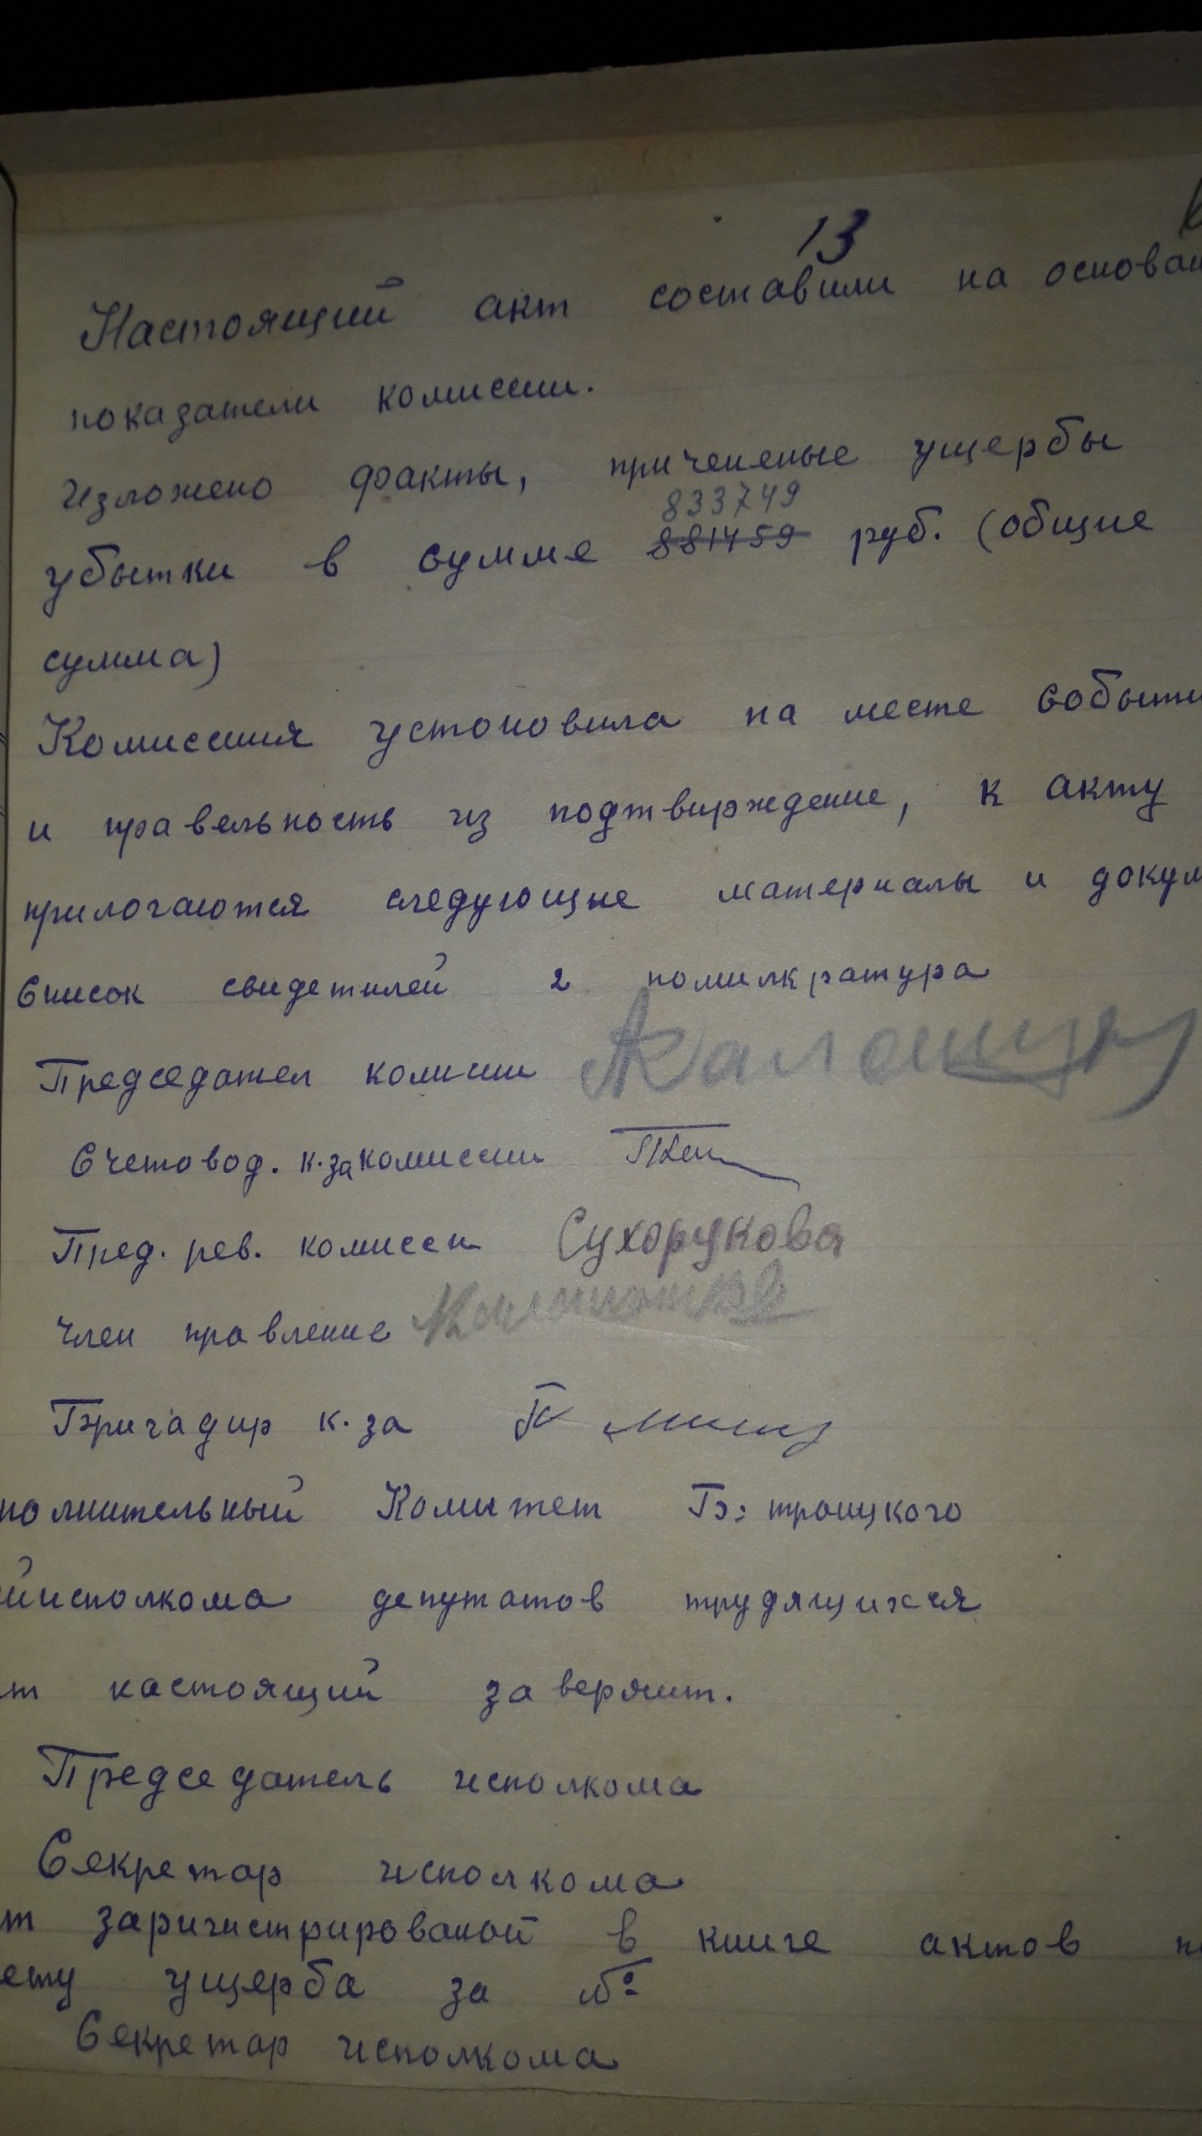 13
Настоящий акт составили на основан
показатели комиссии.
Изложено факты, причененые ущербы
833749
убытки в сумме 881459 руб. (общие
сумма)
Комиссия устоновила на месте событи
и правельность из подтвирждение, к акту
прилогаются следующие материалы и докум
Список свидетилей 2
Председател комиссии
Счетовод. к-за комиссии
Пред. рев. комиссеи Сухорукова
Член правление
Бригадир к-за
полнительный Комитет Б: троицкого
йисполкома депутатов трудящихся
т настоящий заверяит.
Председатель исполкома
Секретар исполкома
т заригистрированой в книге актов п
ету ущерба за №
Секретар исполкома